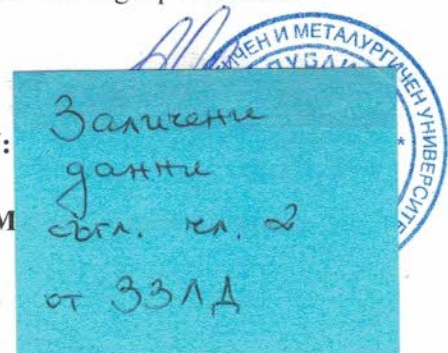 ЧЕН И МЕТАЛУРГИЧЕН УНИВЕРСИТЕ
ПУБЛИ
Заличени
:
данни
М
съгл. чл. 2
от ЗЗЛД